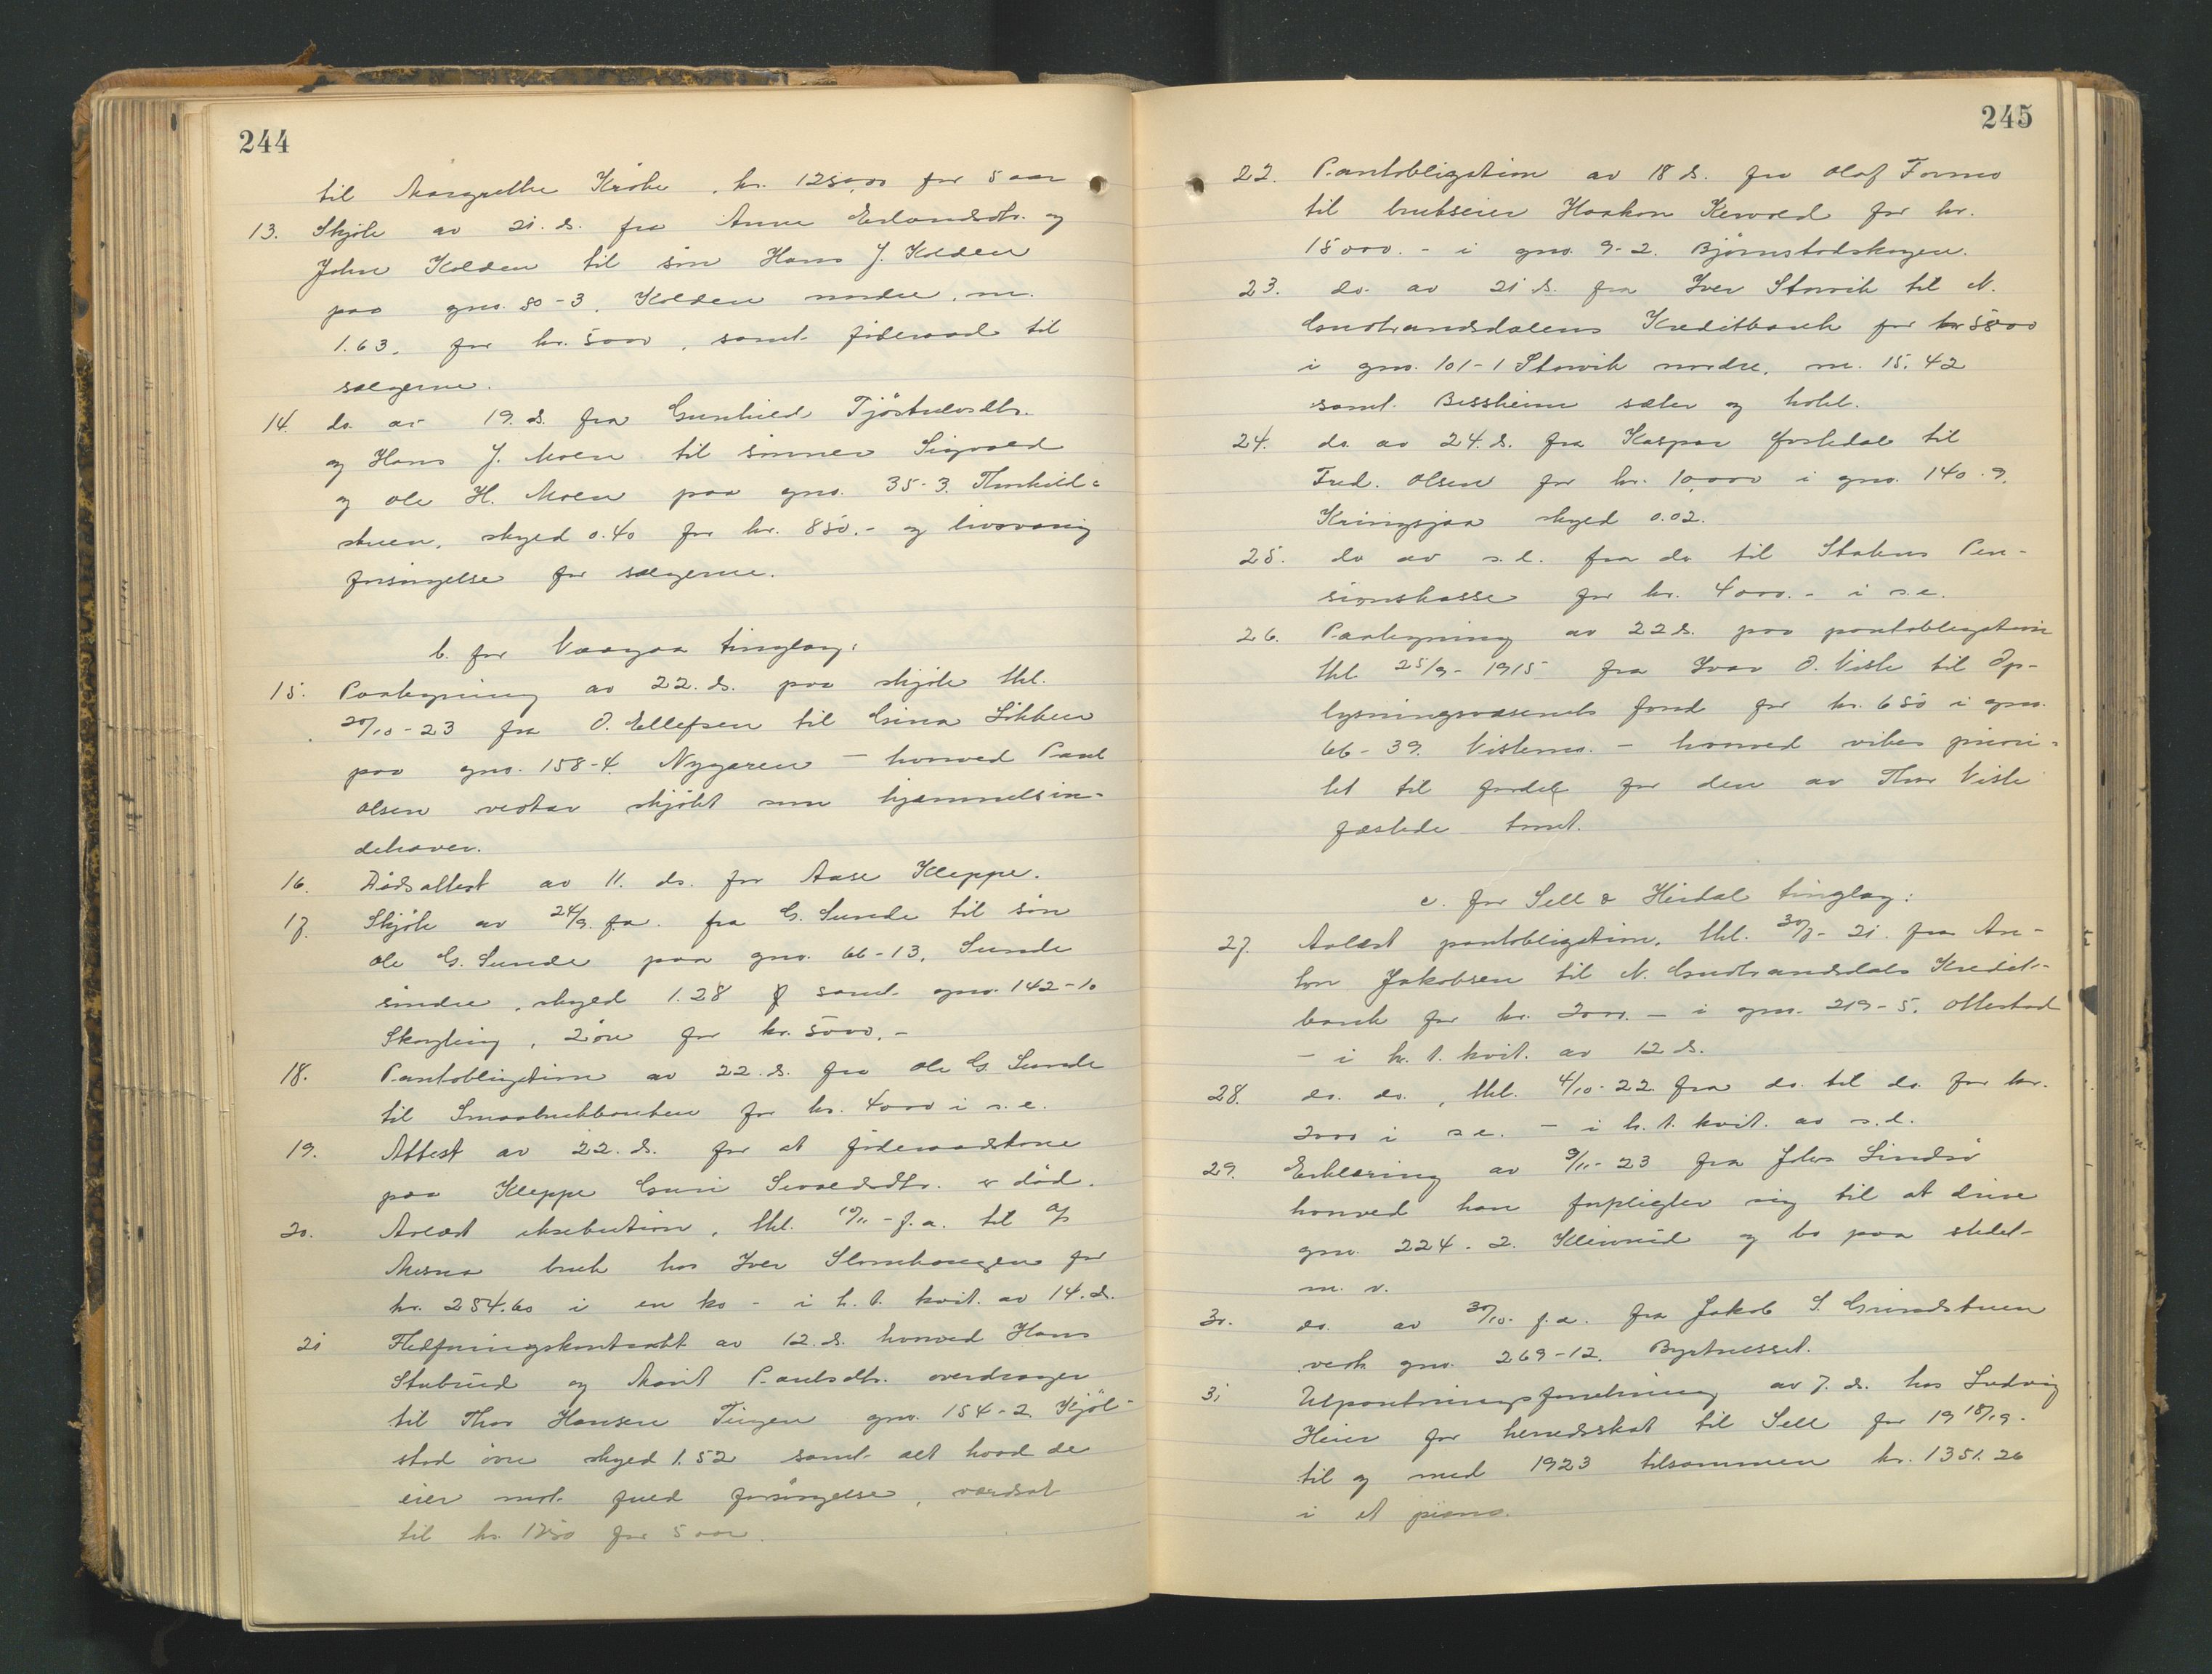 244
til Margrethe Kråke, kr. 1250,00 for 5 aar
13. Skjöte av 21. ds. fra Anne Erlandsdtr. og
John Kolden til sön Hans J. Kolden
paa gno. 80-3. Kolden nordre, m.
1.63, for kr. 5000, samt föderaad til
sælgerne.
14. do. av 19. ds. fra Gunhild Tjöstulvsdtr.
og Hans J. Moen til sönner Sigvald
og Ole H. Moen paa gno. 35-3. Thorhild-
stuen, skyld 0.40 for kr. 850.- og livsvarig
forsörgelse for sælgerne.
b. for Vaagaa tinglag:
15. Paategning av 22. ds. paa skjöte thl.
20/10-23 fra O. Ellefsen til Gina Lökken
paa gno. 158-4. Nygaren - hvorved Paul
Olsen vedtar skjötet som hjemmelsin-
dehaver.
16. Dödsattest av 11. ds. for Aase Kleppe.
17. Skjöte av 24/9. f.a. fra G. Sunde til sön
Ole G. Sunde paa gno. 66-13, Sunde
söndre, skyld 1.28 samt gno. 142-10
Skogteig, 2 öre for kr. 5000.-
18. Pantobligation av 22. ds. fra Ole G. Sunde
til Smaabrukbanken for kr. 4000 i s.e.
19. Attest av 22. ds. for at föderaadskone
paa Kleppe Guri Sevaldsdtr. er död.
20. Avlæst eksekution, thl. 19/11-f.a. til A/S
Mesna bruk hos Iver Slomhaugen for
kr. 254.60 i en ko - i h. t. kvit. av 14. ds.
21 Fledföringskontrakt av 12. ds. hvorved Hans
Stubrud og Marit Paulsdtr. overdrager
til Thor Hansen Turgen gno. 154-2 Kjöl-
stad övre skyld 1.52 samt alt hvad de
eier mot fuld forsörgelse, værdsat
til kr. 1250 for 5 aar.
245
22. Pantobligation av 18 ds. fra Olaf Formo
til brukseier Haakon Kervold for kr.
15000.- i gno. 9-2. Bjørnstadskogen.
23. do. av 21 ds. fra Iver Storvik til N.
Gudbrandsdalens Kreditbank for kr 5000
i gno. 101-1 Storvik nordre, m. 15.42
samt Bessheim sæter og hotel.
24. do. av 24. ds. fra Kaspar Jostedal til
Fred. Olsen for kr. 10,000 i gno. 140-9.
Kringsjaa skyld 0.02.
25. do av s.d. fra do til Statens Pen-
sionskasse for kr. 4000.- i s.e.
26. Paategning av 22 ds. paa pantobligation
thl. 25/9-1915 fra Ivar O. Visle til Op-
lysningsvæsenets fond for kr. 650 i gno.
66-39. Vislemo. - hvorved vikes priori-
tet til fordel for den av Thor Visle
fæstede tomt.
c. for Sell & Heidal tinglag:
27. Avlæst pantobligation, thl. 30/7-21. fra An-
ton Jakobsen til N. Gudbrandsdals Kredit-
bank for kr. 2000.- i gno. 219-5. Ottestad
- i h. t. kvit. av 12 ds.
28. do. do., thl. 4/10-22 fra do. til do. for kr.
2000 i s.e. - i h. t. kvit. av s.d.
29. Erklæring av 9/11-23 fra Johs Lindsö
hvorved han forpligter sig til at drive
gno. 224-2. Kleivrud og bo paa stedet
m. v.
30. do. av 30/10. f.a. fra Jakob S. Grindstuen
vedk gno. 269-12. Byrtnesset.
31 Utpantningsforretning av 7. ds. hos Ludvig
Heier for herredsskat til Sell for 1918/19-
til og med 1923 tilsammen kr. 1351.26
i et piano.